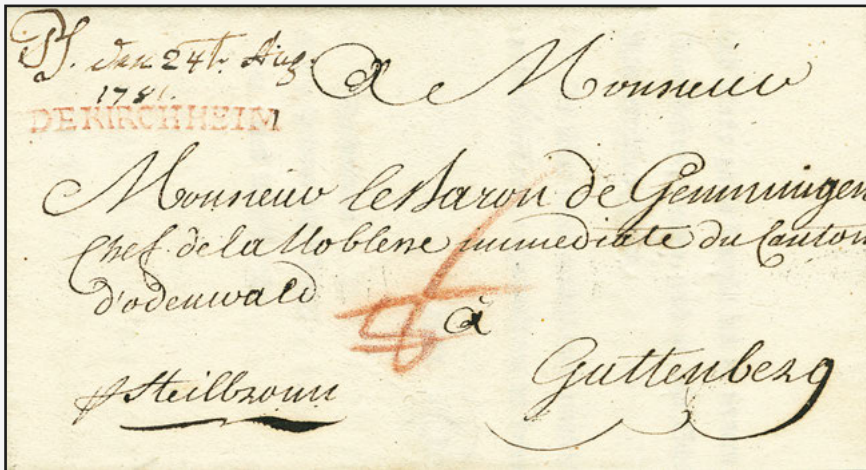 Pf. den 24t. Aug.
1781.
DE KIRCHHEIM
A Monsieur
Monsieur le Baron de Gemmingen
Chef de la Noblesse immediate du Canton
d'odenwald
à
Guttenberg
Heilbronn